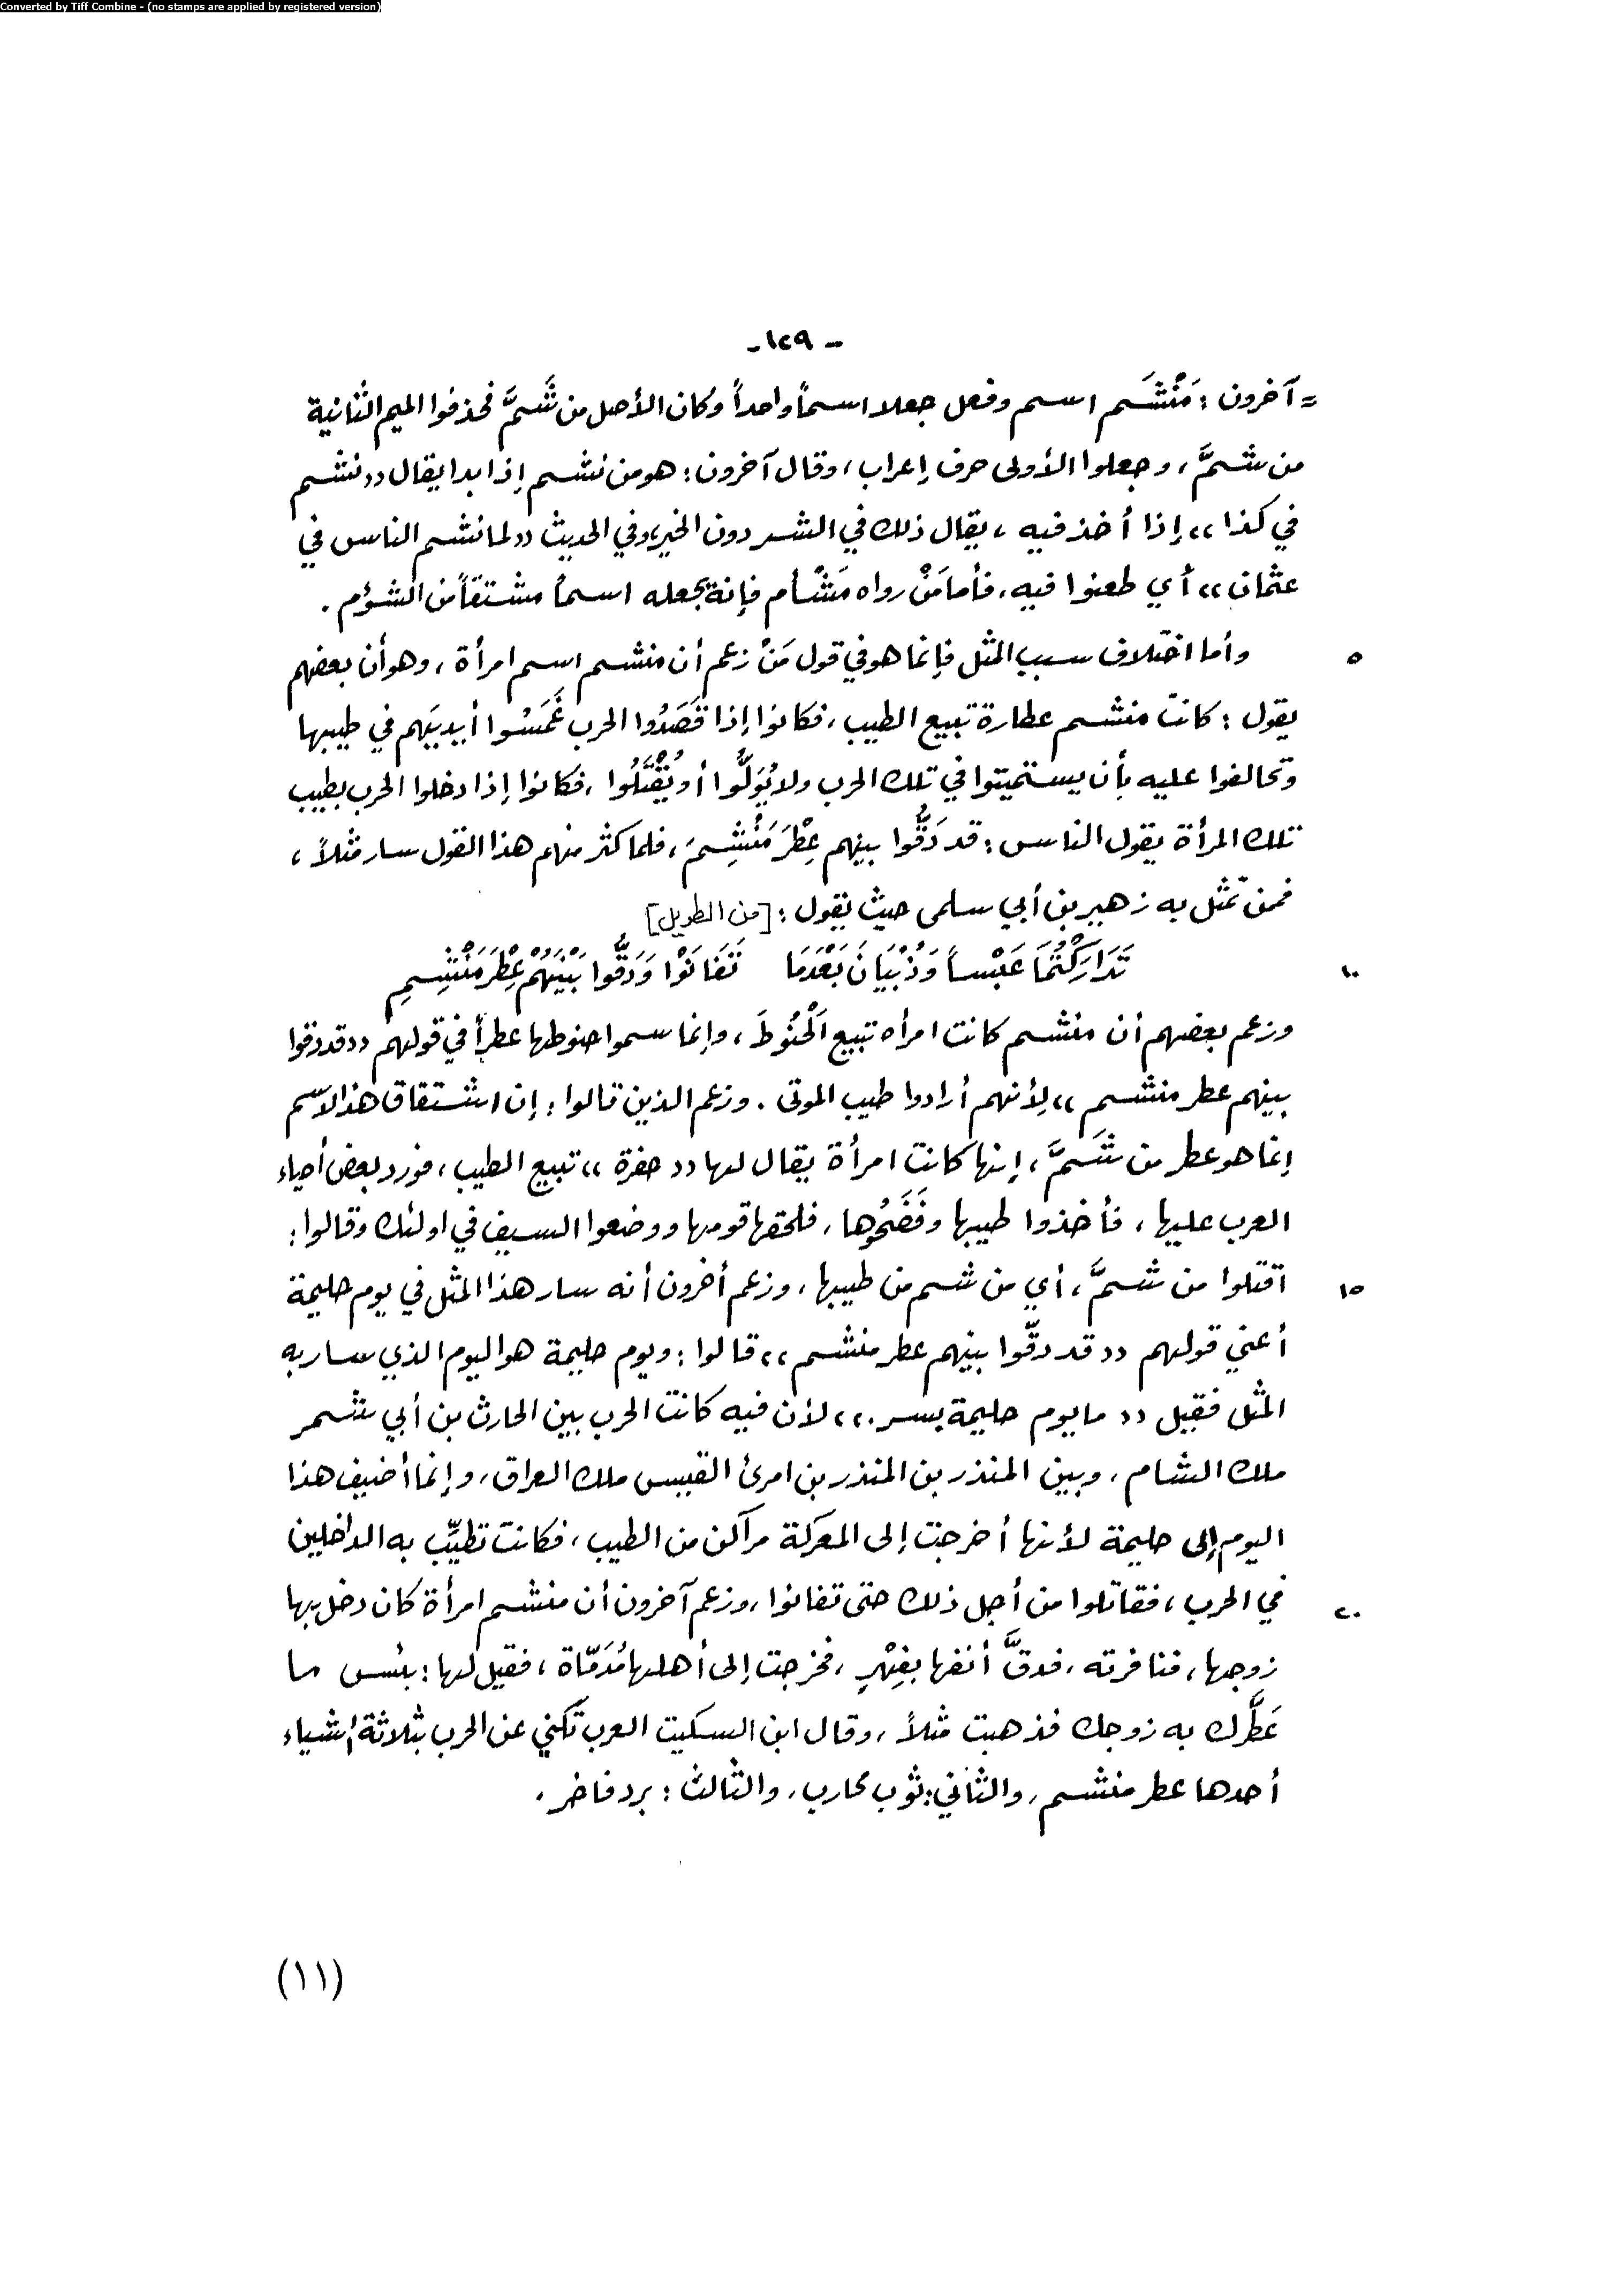 Converted by Tiff Combine - (no stamps are applied by registered version)
- ١٢٩ -
= آخرون : مَنْشَم اسم وفعل جعلا اسماً واحداً وكان الأصل من شَمَّ فحذفوا الميم الثانية
من شمَّ ، وجعلوا الأولى حرف إعراب ، وقال آخرون : هو من نشم إذا بدا يقال ,, نشم
في كذا ،، إذا أخذ فيه ، يقال ذلك في الشر دون الخير، وفي الحديث ,, لما نشم الناس في
عثمان ،، أي طعنوا فيه ، فأما مَنْ رواه مَشْأم فإنه يجعله اسماً مشتقاً من الشؤم .
٥ وأما اختلاف سبب المثل فإنما هو في قول مَنْ زعم أن منشم اسم امرأة ، وهو أن بعضهم
يقول : كانت منشم عطارة تبيع الطيب ، فكانوا إذا قَصَدُوا الحرب غَمَسُوا أيديَهم في طيبها
وتحالفوا عليه بأن يستميتوا في تلك الحرب ولا يُوَلُّوا أو يُقْتَلُوا ، فكانوا إذا دخلوا الحرب بطيب
تلك المرأة يقول الناس : قد دَقُّوا بينهم عِطْرَ مَنْشِمَ ، فلما كثر منهم هذا القول سار مثلاً ،
فمن تمثل به زهير بن أبي سلمى حيث يقول : [من الطويل]
١٠ تَدَارَكْتُمَا عَبْساً وَذُبْيَانَ بَعْدَمَا تَفَانَوْا وَدَقُّوا بَيْنَهُمْ عِطْرَ مَنْشِمِ
وزعم بعضهم أن منشم كانت امرأه تبيع اَلْحَنُوطَ ، وإنما سموا حنوطها عطراً في قولهم ,, قد دقوا
بينهم عطر منشم ،، لأنهم أرادوا طيب الموتى . وزعم الذين قالوا : إن اشتقاق هذا الاسم
إنما هو عطر من شَمَّ ، إنها كانت امرأة يقال لها ,, خفرة ،، تبيع الطيب ، فورد بعض أحياء
العرب عليها ، فأخذوا طيبها وفَضَحُوها ، فلحقها قومها ووضعوا السيف في اولئك وقالوا :
١٥ اقتلوا من شمَّ ، أي من شم من طيبها ، وزعم أخرون أنه سار هذا المثل في يوم حليمة
أعني قولهم ,, قد دقّوا بينهم عطر منشم ،، قالوا : ويوم حليمة هو اليوم الذي سار به
المثل فقيل ,, ما يوم حليمة بسر . ،، لأن فيه كانت الحرب بين الحارث بن أبي شمر
ملك الشام ، وبين المنذر بن المنذر بن امرئ القيس ملك العراق ، وإنما أضيف هذا
اليوم إلى حليمة لأنها أخرجت إلى المعركة مراكن من الطيب ، فكانت تطيِّب به الداخلين
٢٠ في الحرب ، فقاتلوا من أجل ذلك حتى تفانوا ، وزعم آخرون أن منشم امرأة كان دخل بها
زوجها ، فنافرته ، فدقَّ أنفها بفِهْرٍ ، فخرجت إلى أهلها مُدَمّاة ، فقيل لها : بئس ما
عَطَّرك به زوجك فذهبت مثلاً ، وقال ابن السكيت العرب تكني عن الحرب بثلاثة أشياء
أحدها عطر منشم ، والثاني : ثوب محارب ، والثالث : برد فاخر .
(١١)